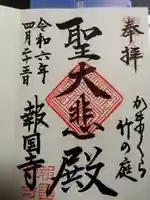 奉拝
かまくら
竹の庭
聖大悲殿
令和六年
四月二十三日
報国寺